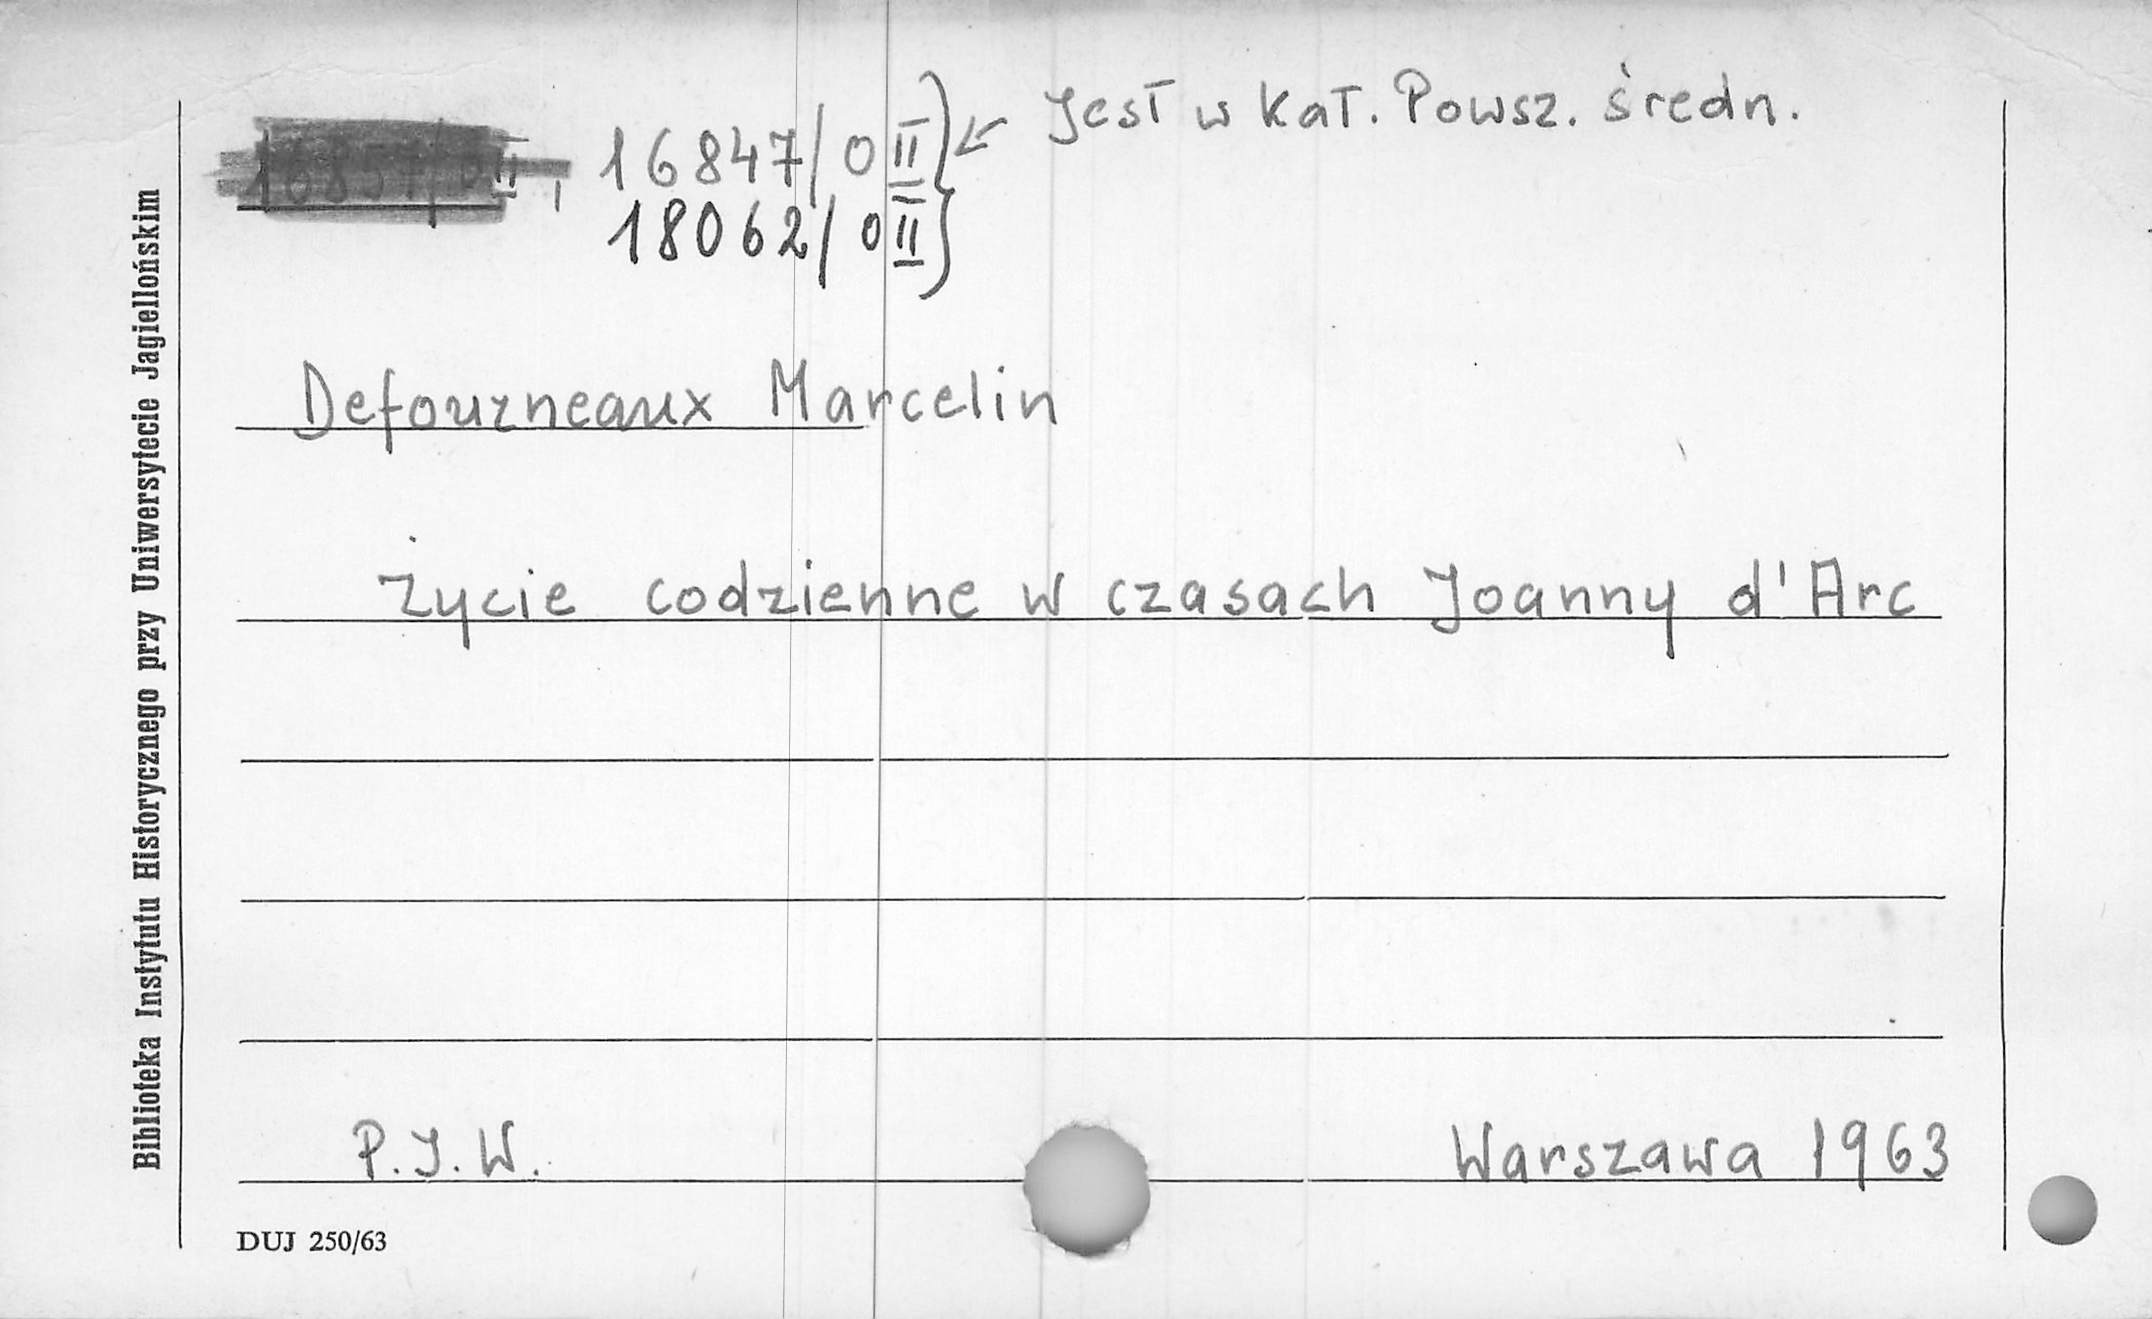 16857/0 II, 16847/0 II } ↙ Jest w kat. Powsz. średn.
18062/0 II }
Defourneaux Marcelin
Życie codzienne w czasach Joanny d'Arc
P.J.W.
Warszawa 1963
DUJ 250/63
Biblioteka Instytutu Historycznego przy Uniwersytecie Jagiellońskim